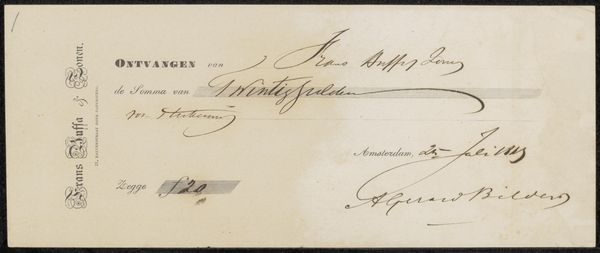 Frans Buffa & Zonen.
ONTVANGEN van Frans Buffa Zonen
de Somma van Twintig gulden
Amsterdam, 25 Juli
Zegge f 20
AGerard Bilders